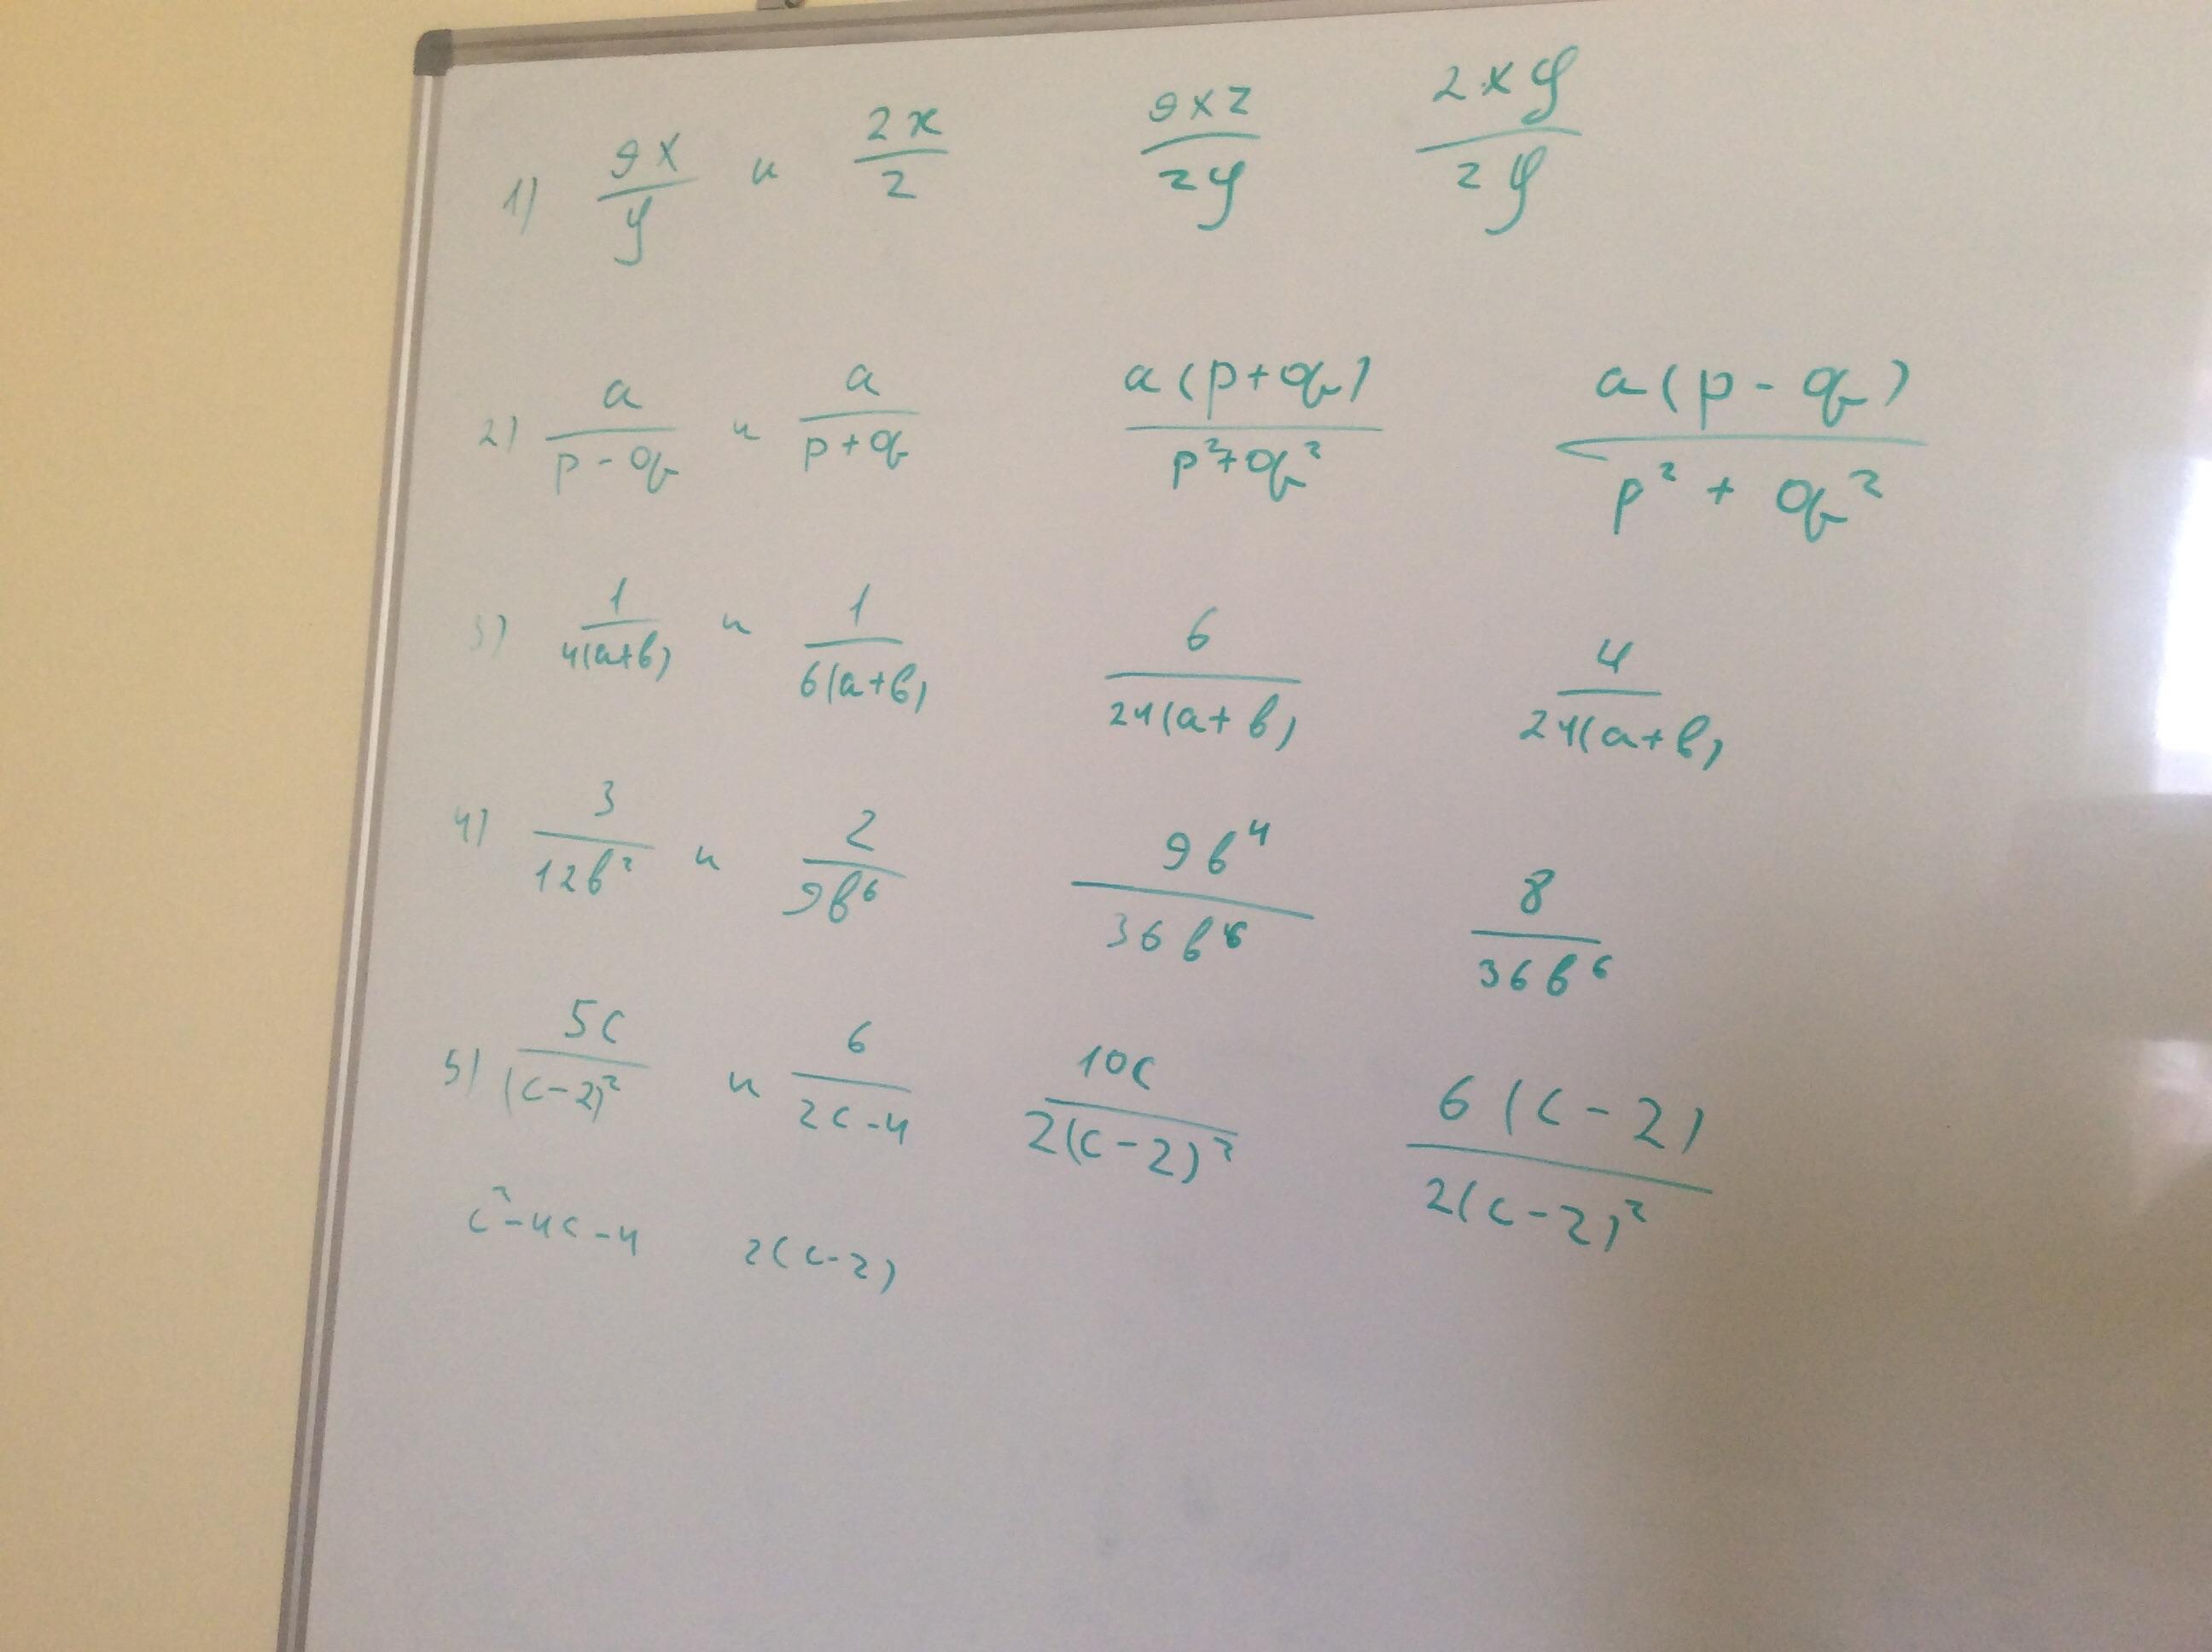 1) 9x/y и 2x/z 9xz/zy 2xy/zy
2) a/(p-q) и a/(p+q) a(p+q)/(p²+q²) a(p-q)/(p²+q²)
3) 1/(4(a+b)) и 1/(6(a+b)) 6/(24(a+b)) 4/(24(a+b))
4) 3/(12b²) и 2/(9b⁶) 9b⁴/(36b⁶) 8/(36b⁶)
5) 5c/(c-2)² и 6/(2c-4) 10c/(2(c-2)²) 6(c-2)/(2(c-2)²)
c²-4c-4 2(c-2)